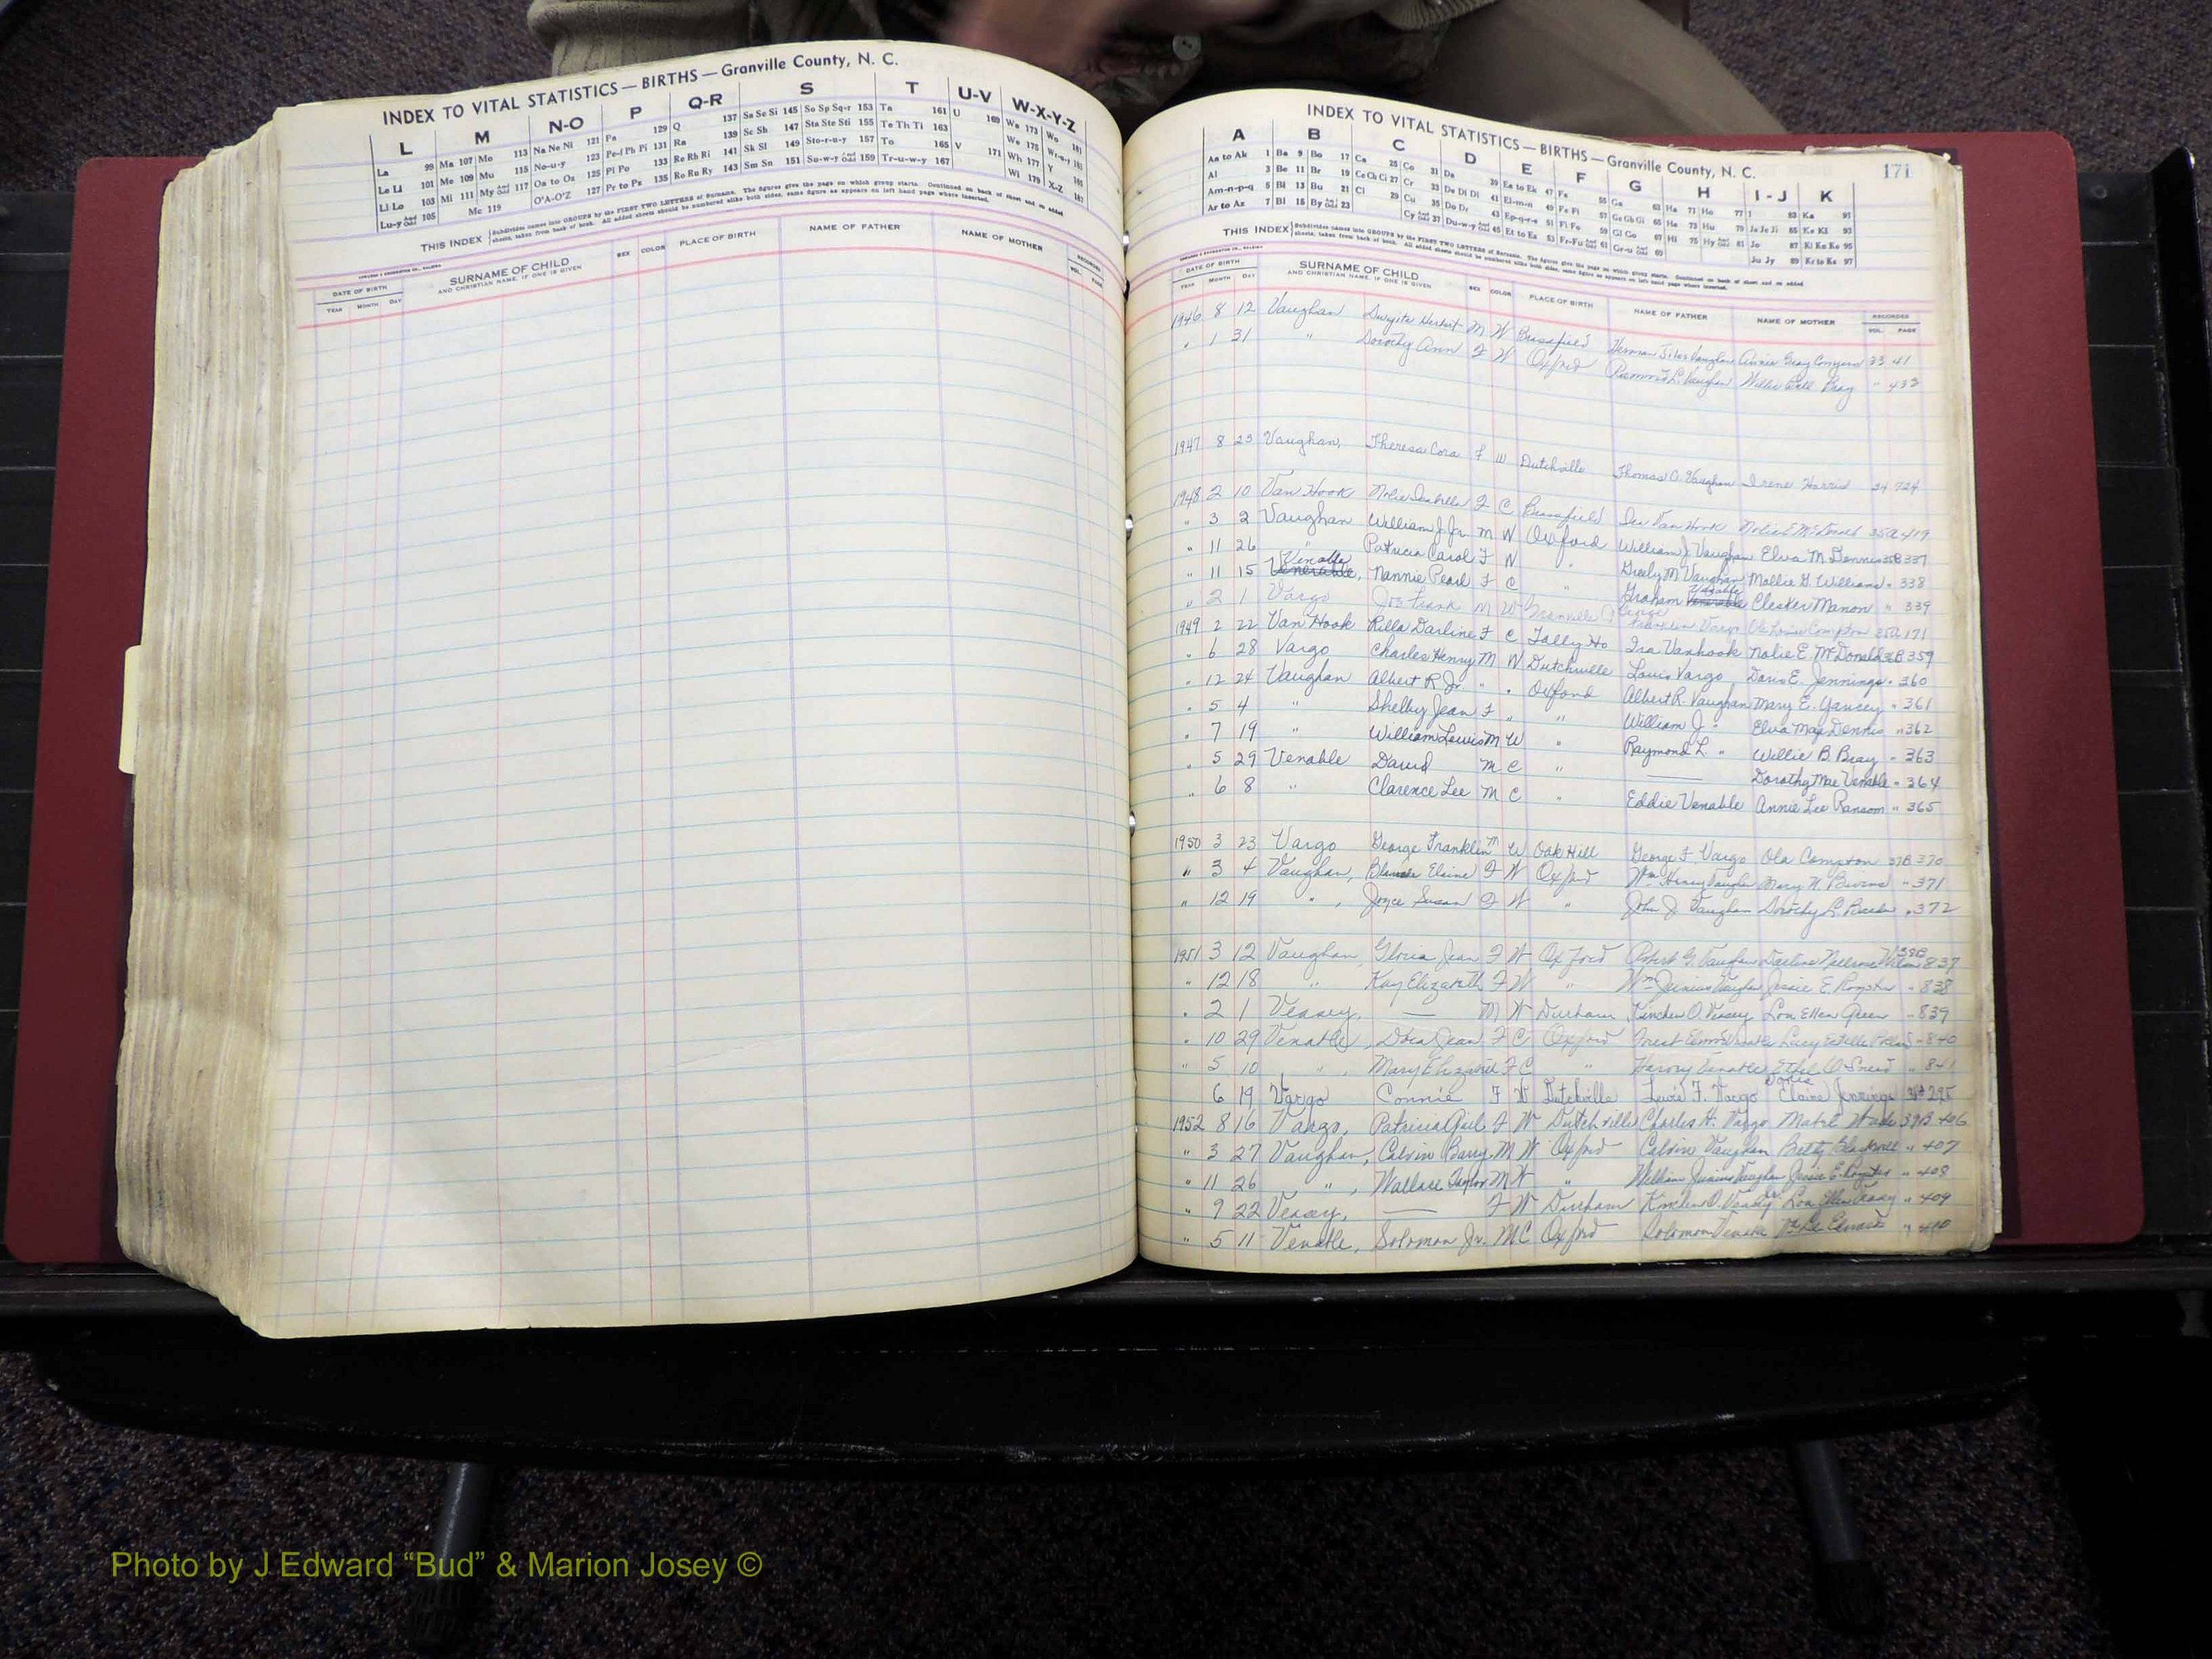 INDEX TO VITAL STATISTICS — BIRTHS — Granville County, N. C.
L M N-O P Q-R S T U-V W-X-Y-Z
La 99 Ma 107 Mo 113 Na Ne Ni 121 Pa 129 Q 137 Sa Sc Si 145 So Sp Sq-r 153 Ta 161 U 169 Wa 173 Wo 181
Le Li 101 Me 109 Mu 115 No-u-y 123 Pe-f Ph Pi 131 Ra 139 Se Sh 147 Sta Ste Sti 155 Te Th Ti 163 We 175 Wr-u-y 183
Ll Lo 103 Mi 111 My And Odd 117 Oa to Oz 125 Pl Po 133 Re Rh Ri 141 Sk Sl 149 Sto-r-u-y 157 To 165 V 171 Wh 177 Y 185
Lu-y And Odd 105 Mc 119 O'A-O'Z 127 Pr to Pz 135 Ro Ru Ry 143 Sm Sn 151 Su-w-y And Odd 159 Tr-u-w-y 167 Wi 179 X-Z 187
THIS INDEX Subdivides names into GROUPS by the FIRST TWO LETTERS of Surname. The figures give the page on which group starts. Continued on back of sheet and on added
sheets, taken from back of book. All added sheets should be numbered alike both sides, same figure as appears on left hand page where inserted.
DATE OF BIRTH SURNAME OF CHILD SEX COLOR PLACE OF BIRTH NAME OF FATHER NAME OF MOTHER RECORDED
YEAR MONTH DAY AND CHRISTIAN NAME, IF ONE IS GIVEN VOL. PAGE
INDEX TO VITAL STATISTICS — BIRTHS — Granville County, N. C.
171
A B C D E F G H I - J K
Aa to Ak 1 Ba 9 Bo 17 Ca 25 Co 31 Da 39 Ea to Ek 47 Fa 55 Ga 63 Ha 71 Ho 77 I 83 Ka 91
Al 3 Be 11 Br 19 Ce Ch Ci 27 Cr 33 De Di Dl 41 El-m-n 49 Fe Fi 57 Ge Gh Gi 65 He 73 Hu 79 Ja Je Ji 85 Ke Kl 93
Am-n-p-q 5 Bi 13 Bu 21 Cl 29 Cu 35 Do Dr 43 Ep-q-r-s 51 Fl Fo 59 Gl Go 67 Hi 75 Hy And Odd 81 Jo 87 Ki Kn Ko 95
Ar to Az 7 Bl 15 By And Odd 23 Cy And Odd 37 Du-w-y And Odd 45 Et to Ez 53 Fr-Fu And Odd 61 Gr-u And Odd 69 Ju Jy 89 Kr to Kz 97
THIS INDEX Subdivides names into GROUPS by the FIRST TWO LETTERS of Surname. The figures give the page on which group starts. Continued on back of sheet and on added
sheets, taken from back of book. All added sheets should be numbered alike both sides, same figure as appears on left hand page where inserted.
DATE OF BIRTH SURNAME OF CHILD SEX COLOR PLACE OF BIRTH NAME OF FATHER NAME OF MOTHER RECORDED
YEAR MONTH DAY AND CHRISTIAN NAME, IF ONE IS GIVEN VOL. PAGE
1946 8 12 Vaughan Herbert M W Brassfield Herman Vaughan Annie Gray Conyers 33 41
" 1 31 " Dorothy Ann F W Oxford L. Vaughan Willie Bell Bray " 433
1947 8 23 Vaughan, Theresa Cora F W Dutchville Thomas O. Vaughan Irene Harris 34 724
1948 2 10 Van Hook Nolie Isabella F C Brassfield Ira Van Hook Nolie E. McDonald 35A 419
" 3 2 Vaughan William J. Jr. M W Oxford William J. Vaughan Elva M. Dennis 35B 337
" 11 26 " Patricia Carol F W " Greely M. Vaughan Mollie G. Williams " 338
" 11 15 Venable, Nannie Pearl F C " Graham Venable Clester Manon " 339
" 2 1 Vargo Joe Frank M W Granville George Franklin Vargo Compton 35A 171
1949 2 22 Van Hook Rilla Darline F C Tally Ho Ira Vanhook Nolie E. McDonald 36B 359
" 6 28 Vargo Charles Henry M W Dutchville Louis Vargo Doris E. Jennings " 360
" 12 24 Vaughan Albert R. Jr. " " Oxford Albert R. Vaughan Mary E. Yancey " 361
" 5 4 " Shelby Jean F " " William J. " Elva Mae Dennis " 362
" 7 19 " William Lewis M W " Raymond L. " Willie B. Bray " 363
" 5 29 Venable David M C " —— Dorothy Mae Venable " 364
" 6 8 " Clarence Lee M C " Eddie Venable Annie Lee Ransom " 365
1950 3 23 Vargo George Franklin M W Oak Hill George F. Vargo Ola Compton 37B 370
" 3 4 Vaughan, Elaine F W Oxford Wm Henry Vaughan Mary N. " 371
" 12 19 " , Joyce Susan F W " John J. Vaughan Dorothy L. " 372
1951 3 12 Vaughan, Gloria Jean F W Oxford Robert G. Vaughan Darline Wilson 38B 837
" 12 18 " Kay Elizabeth F W " Wm Junius Vaughan Jessie E. Royster " 838
" 2 1 Veasey, — M W Durham Kinchen O. Veasey Lou Ellen Green " 839
" 10 29 Venable, Dora Jean F C Oxford Forest Venable Lucy Estelle " 840
" 5 10 " , Mary Elizabeth F C " Harvey Venable Ethel O. Snead " 841
6 19 Vargo Connie F W Dutchville Lewis F. Vargo Doris Elaine Jennings 295
1952 8 16 Vargo, Patricia Gail F W Dutchville Charles H. Vargo Mabel Wade 39B 406
" 3 27 Vaughan, Calvin Barry M W Oxford Calvin Vaughan Betty Blackwell " 407
" 11 26 " , Wallace Taylor M W " William Junius Vaughan Jessie E. Royster " 408
" 9 22 Veasey, —— F W Durham Kinchen O. Veasey Jr. Lou Ellen Veasey " 409
" 5 11 Venable, Solomon Jr. M C Oxford Solomon Venable " 410
Photo by J Edward “Bud” & Marion Josey ©